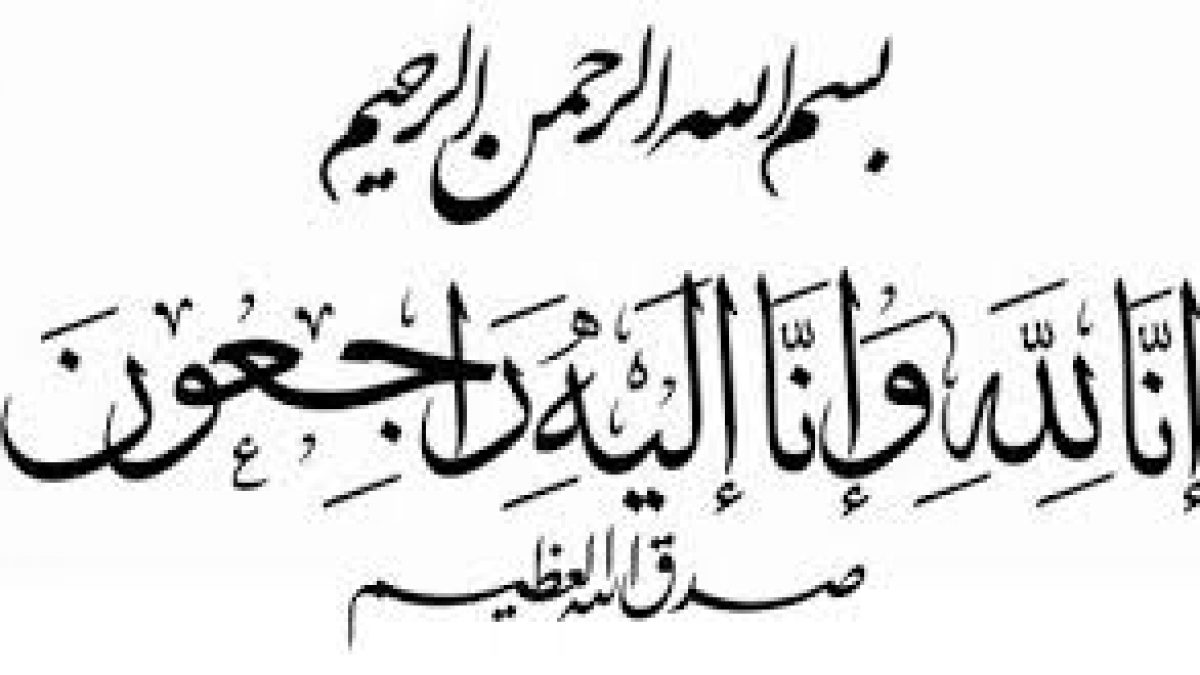 بسم الله الرحمن الرحيم
إِنَّا لِلَّهِ وَإِنَّا إِلَيْهِ رَاجِعُونَ
صدق الله العظيم